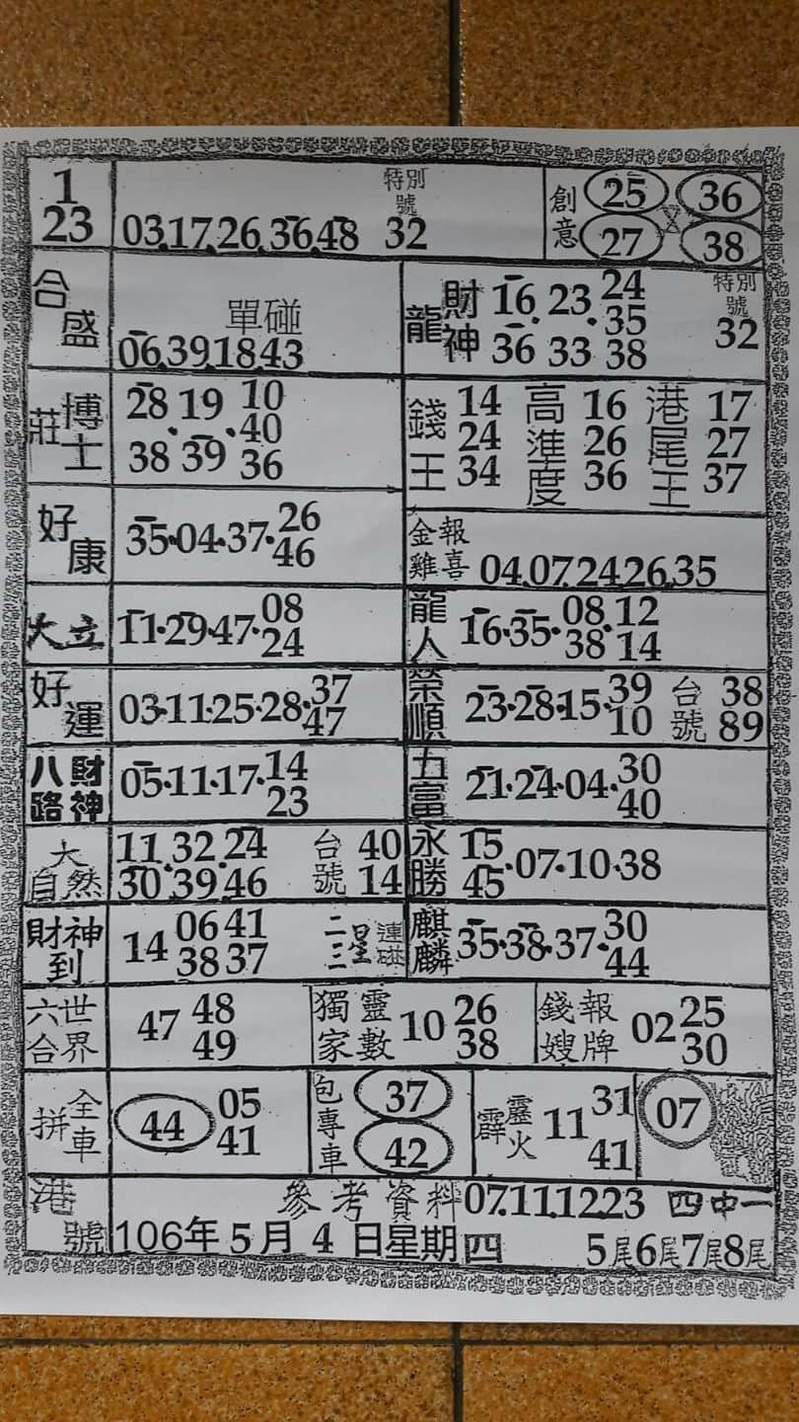 1
23
特別
號
03.17.26.36.48 32
創意
25 36
27 38
合盛
單碰
06.39.18.43
龍
財神
16 23 24
35
36 33 38
特別
號
32
莊
博士
28 19 10
40
38 39 36
錢王
14
24
34
高準度
16
26
36
港尾王
17
27
37
好康
35·04·37·26
46
金雞
報喜
04.07.24.26.35
大立
11·29·47·08
24
龍人
16·35·08·12
38 14
好運
03·11·25·28·37
47
榮順
23·28·15·39
10
台號
38
89
八路
財神
05·11·17·14
23
五富
21·24·04·30
40
大自然
11.32.24
30.39.46
台號
40
14
永勝
15
45
·07·10·38
財神到
14
06 41
38 37
二三星
連碰
麒麟
35·38·37·30
44
六合
世界
47
48
49
獨家
靈數
10
26
38
錢嫂
報牌
02
25
30
拼
全車
44
05
41
包專車
37
42
霹靂火
11
31
41
07
港號
參考資料07.11.12.23 四中一
106年5月4日星期四 5尾6尾7尾8尾